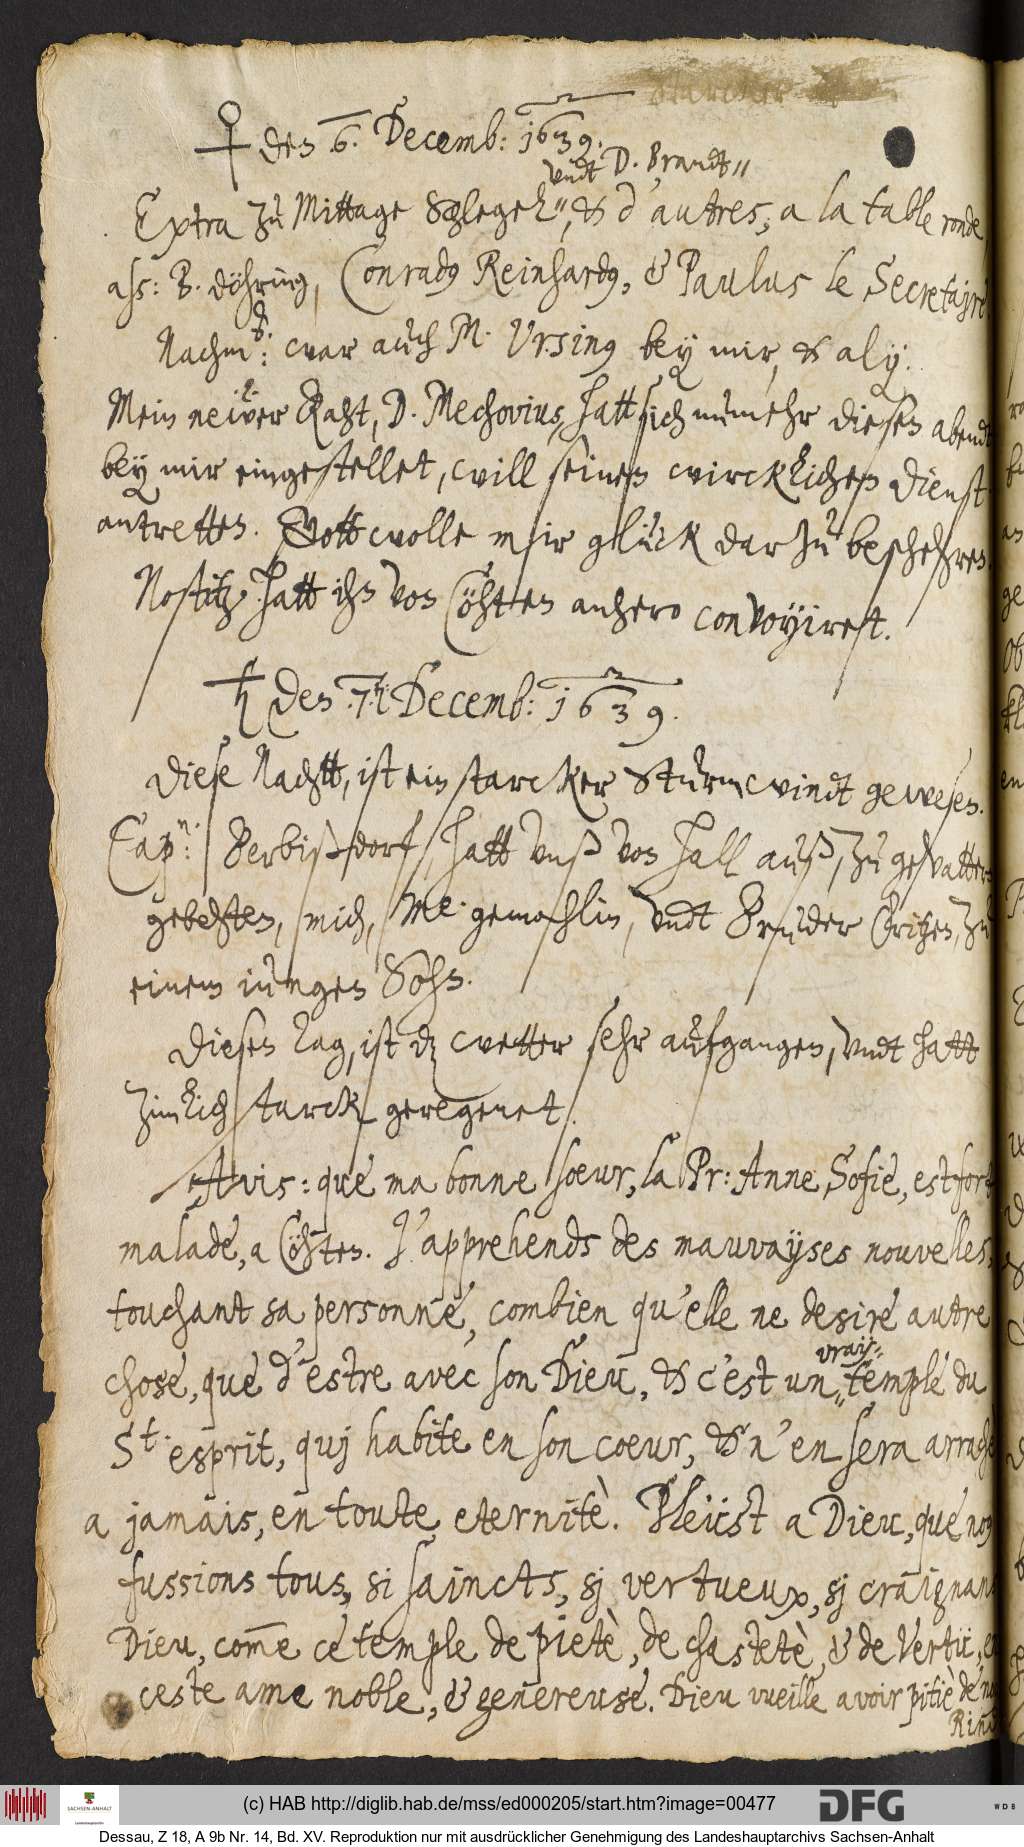 ♀ den .6. Decemb: 1639.
vndt D. Brandt
Extra zu Mittage Schlegel, & d'autres, a la table ronde
ass: B. döhring, Conradus Reinhardus, & Paulus le Secretayre
Nachm: war auch M. Ursinus bey mir, & alij.
Mein newer Raht, D. Mechovius, hatt sich nunmehr diesen abendt
bey mir eingestellet, will seinen wircklichen dienst
antretten. Gott wolle mir glück darzu beschehren.
Nostitz hatt ihn von Cöhten anhero convoyiret.
♄ den .7. Decemb: 1639.
Diese Nachtt, ist ein starcker Sturmwindt gewesen.
Capn: Berbißdorf, hatt vnß von Hall auß, zu gevattern
gebehten, mich, Me. gemahlin, vndt Bruder Fritzen, zu
einem iungen Sohn.
Diesen Tag, ist dz wetter sehr aufgangen, vndt hatt
zimlich starck geregenet.
Avis: que ma bonne soeur, la Pr: Anne Sofie, est fort
malade, a Cöhten. J'apprehends des mauvayses nouvelles,
touchant sa personne, combien qu'elle ne desire autre
vray
chose, que d'estre avec son Dieu, & c'est un temple du
St. esprit, quj habite en son coeur, & n'en sera arraché
a jamais, en toute eternitè. Pleust a Dieu, que nous
fussions tous, si saincts, sj vertueux, sj craignans
Dieu, come ce temple de pietè, de chastetè, & de Vertu, en
ceste ame noble, & genereuse. Dieu vueille avoir pitiè de nous
(c) HAB http://diglib.hab.de/mss/ed000205/start.htm?image=00477
SACHSEN-ANHALT
DFG
WDB
Dessau, Z 18, A 9b Nr. 14, Bd. XV. Reproduktion nur mit ausdrücklicher Genehmigung des Landeshauptarchivs Sachsen-Anhalt